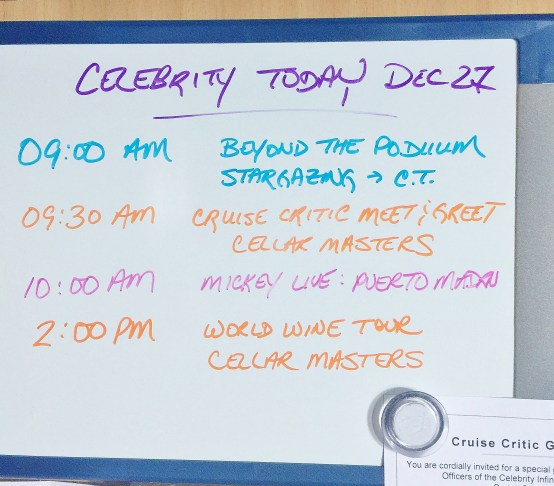 CELEBRITY TODAY DEC 27
09:00 AM BEYOND THE PODIUM
STARGAZING → C.T.
09:30 AM CRUISE CRITIC MEET & GREET
CELLAR MASTERS
10:00 AM MICKEY LIVE: PUERTO MADRN
2:00 PM WORLD WINE TOUR
CELLAR MASTERS
Cruise Critic G
You are cordially invited for a special
Officers of the Celebrity Infin